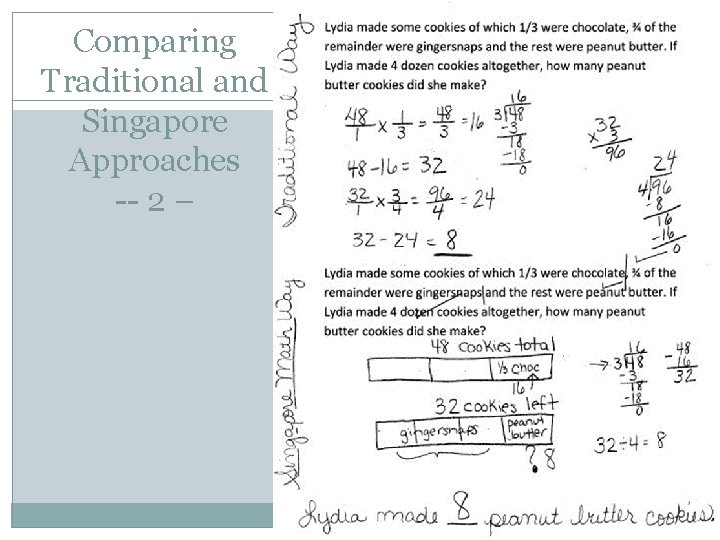 Comparing
Traditional and
Singapore
Approaches
-- 2 –
Traditional Way
Lydia made some cookies of which 1/3 were chocolate, ¾ of the
remainder were gingersnaps and the rest were peanut butter. If
Lydia made 4 dozen cookies altogether, how many peanut
butter cookies did she make?
48/1 x 1/3 = 48/3 = 16
16
3)48
-3
18
-18
0
32
x 3
96
48-16 = 32
32/1 x 3/4 = 96/4 = 24
24
4)96
-8
16
-16
0
32 - 24 = 8
Singapore Math Way
Lydia made some cookies of which 1/3 were chocolate, ¾ of the
remainder were gingersnaps and the rest were peanut butter. If
Lydia made 4 dozen cookies altogether, how many peanut
butter cookies did she make?
48 cookies total
1/3 choc
16
→ 3)48
16
-3
18
-18
0
48
- 16
32
32 cookies left
gingersnaps
peanut
butter
? 8
32÷4=8
Lydia made 8 peanut butter cookies.